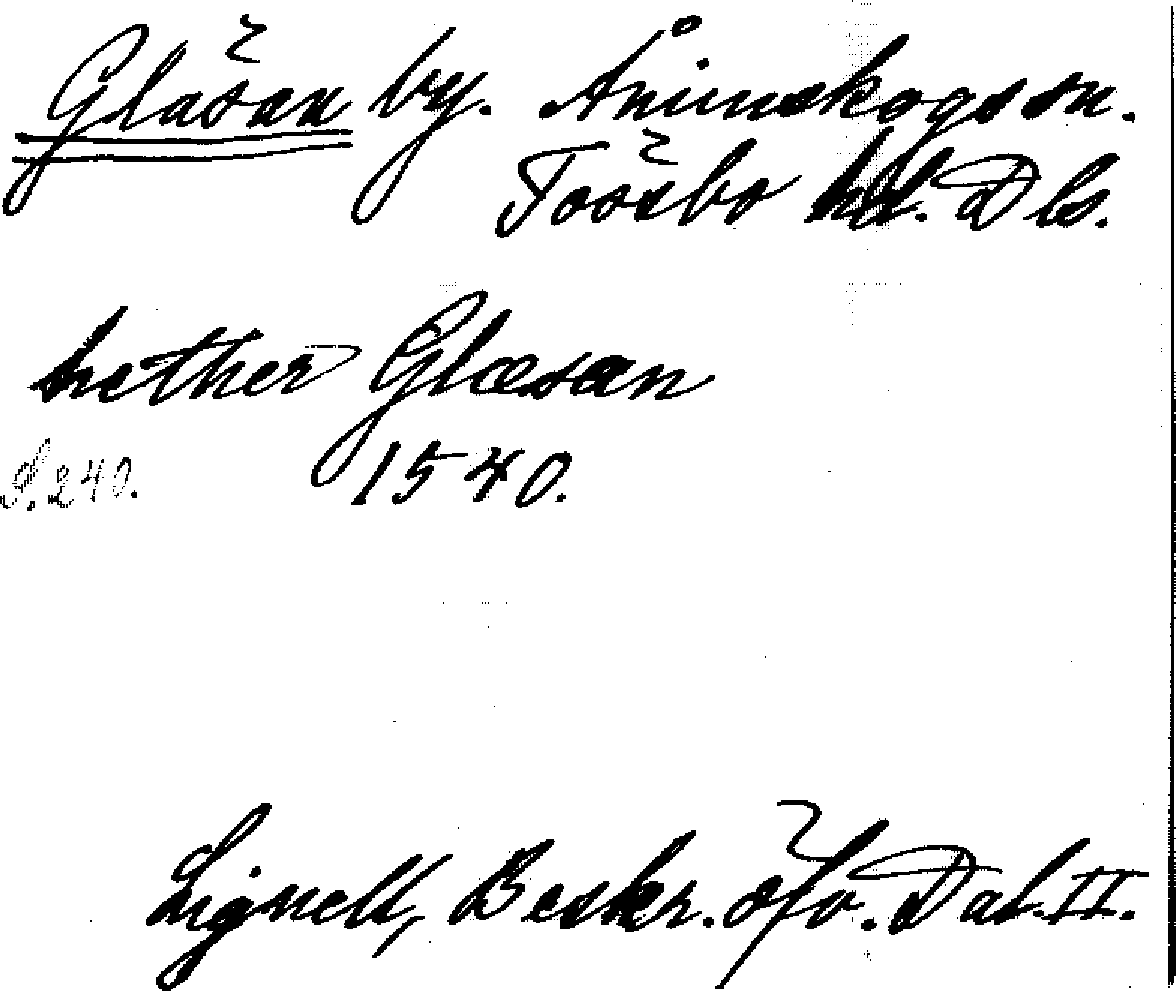 Gläsan by. Ånimskogs sn.
Tössbo hd. Dls.
nether Glæsan
S. 240. 1540.
Lignell, Beskr. öfv. Dal. II.